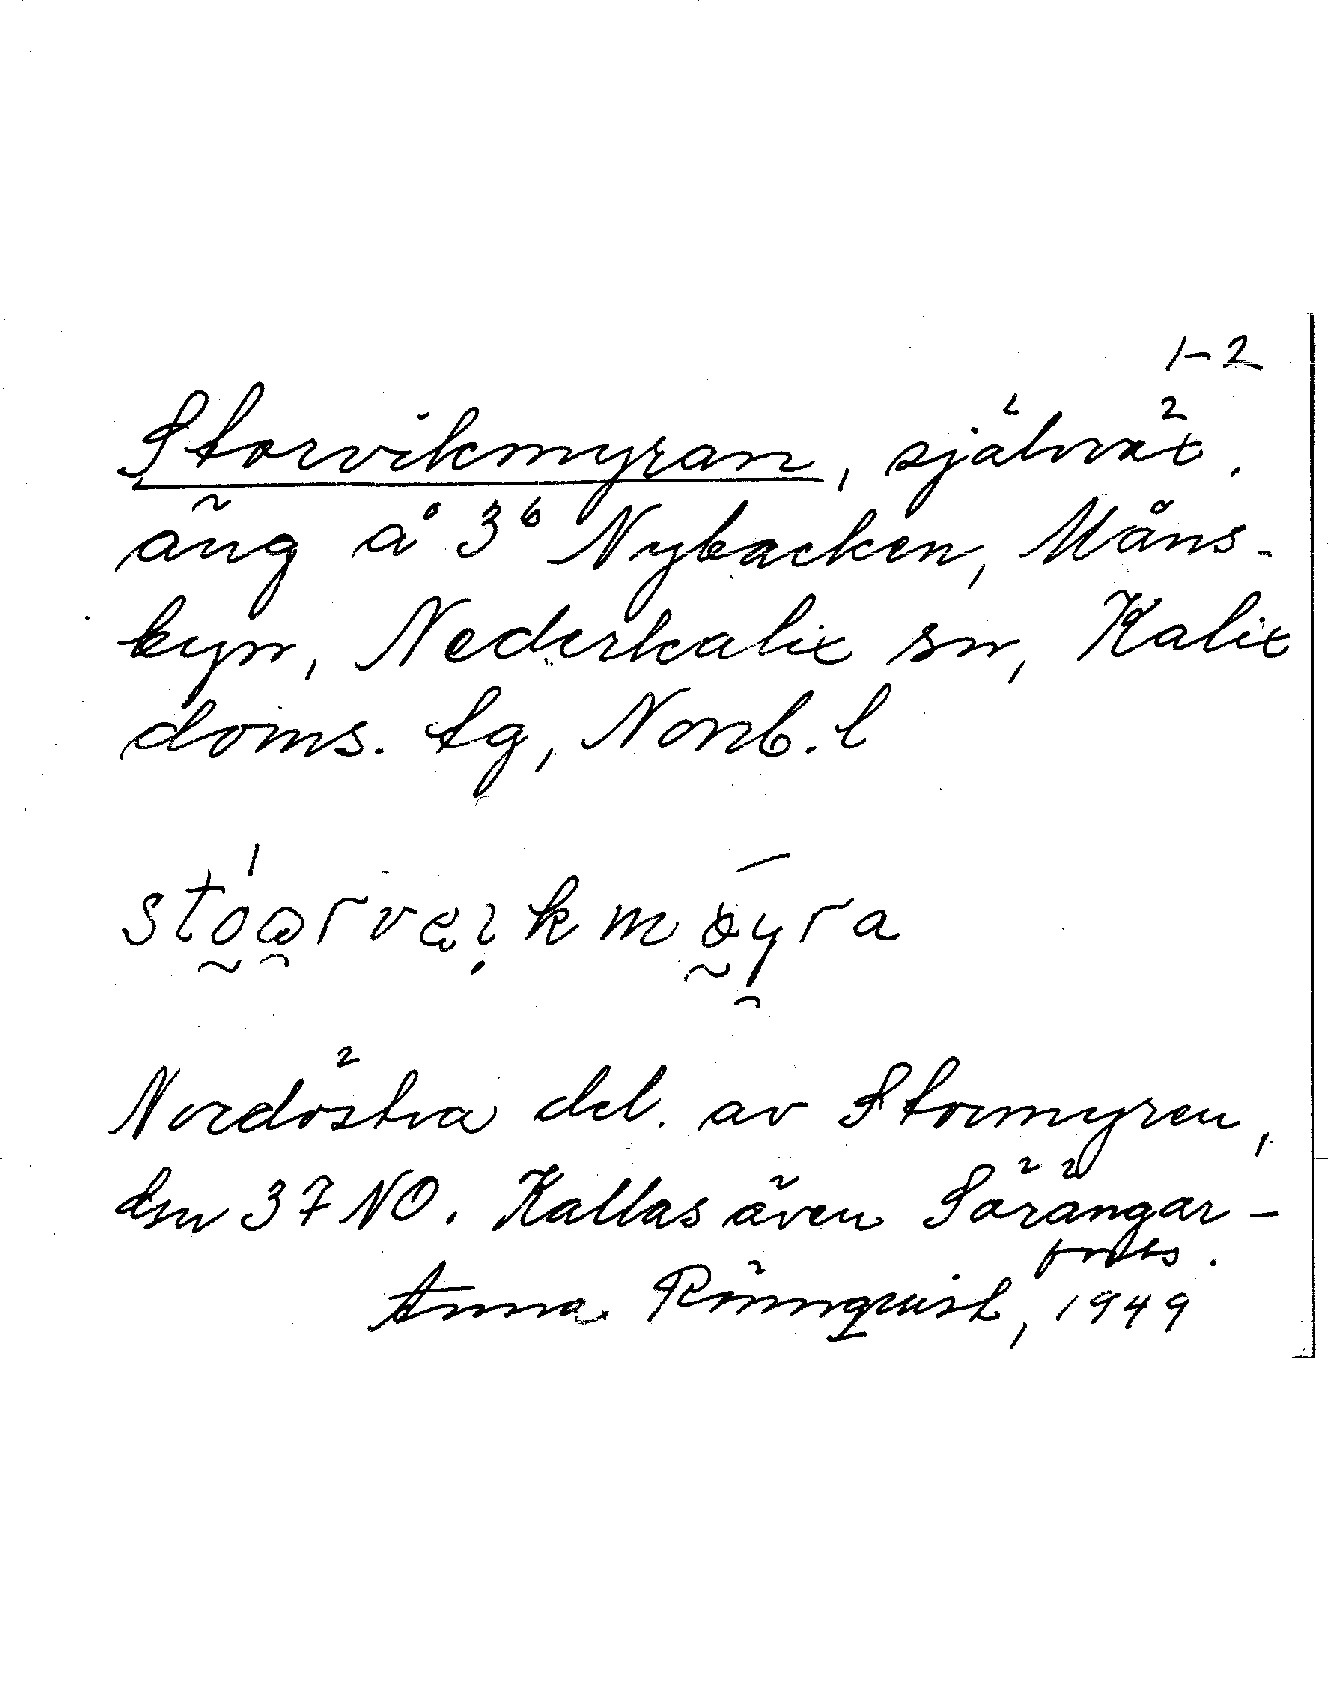 1-2
Storvikmyran, självväx.
äng å 3⁶ Nybacken, Måns-
byn, Nederkalix sn, Kalix
doms. tg, Norrb. l
Nordöstra del. av Stormyren,
den 37 NO. Kallas även Sörängar-
forts.
Anna Rönnquist, 1949